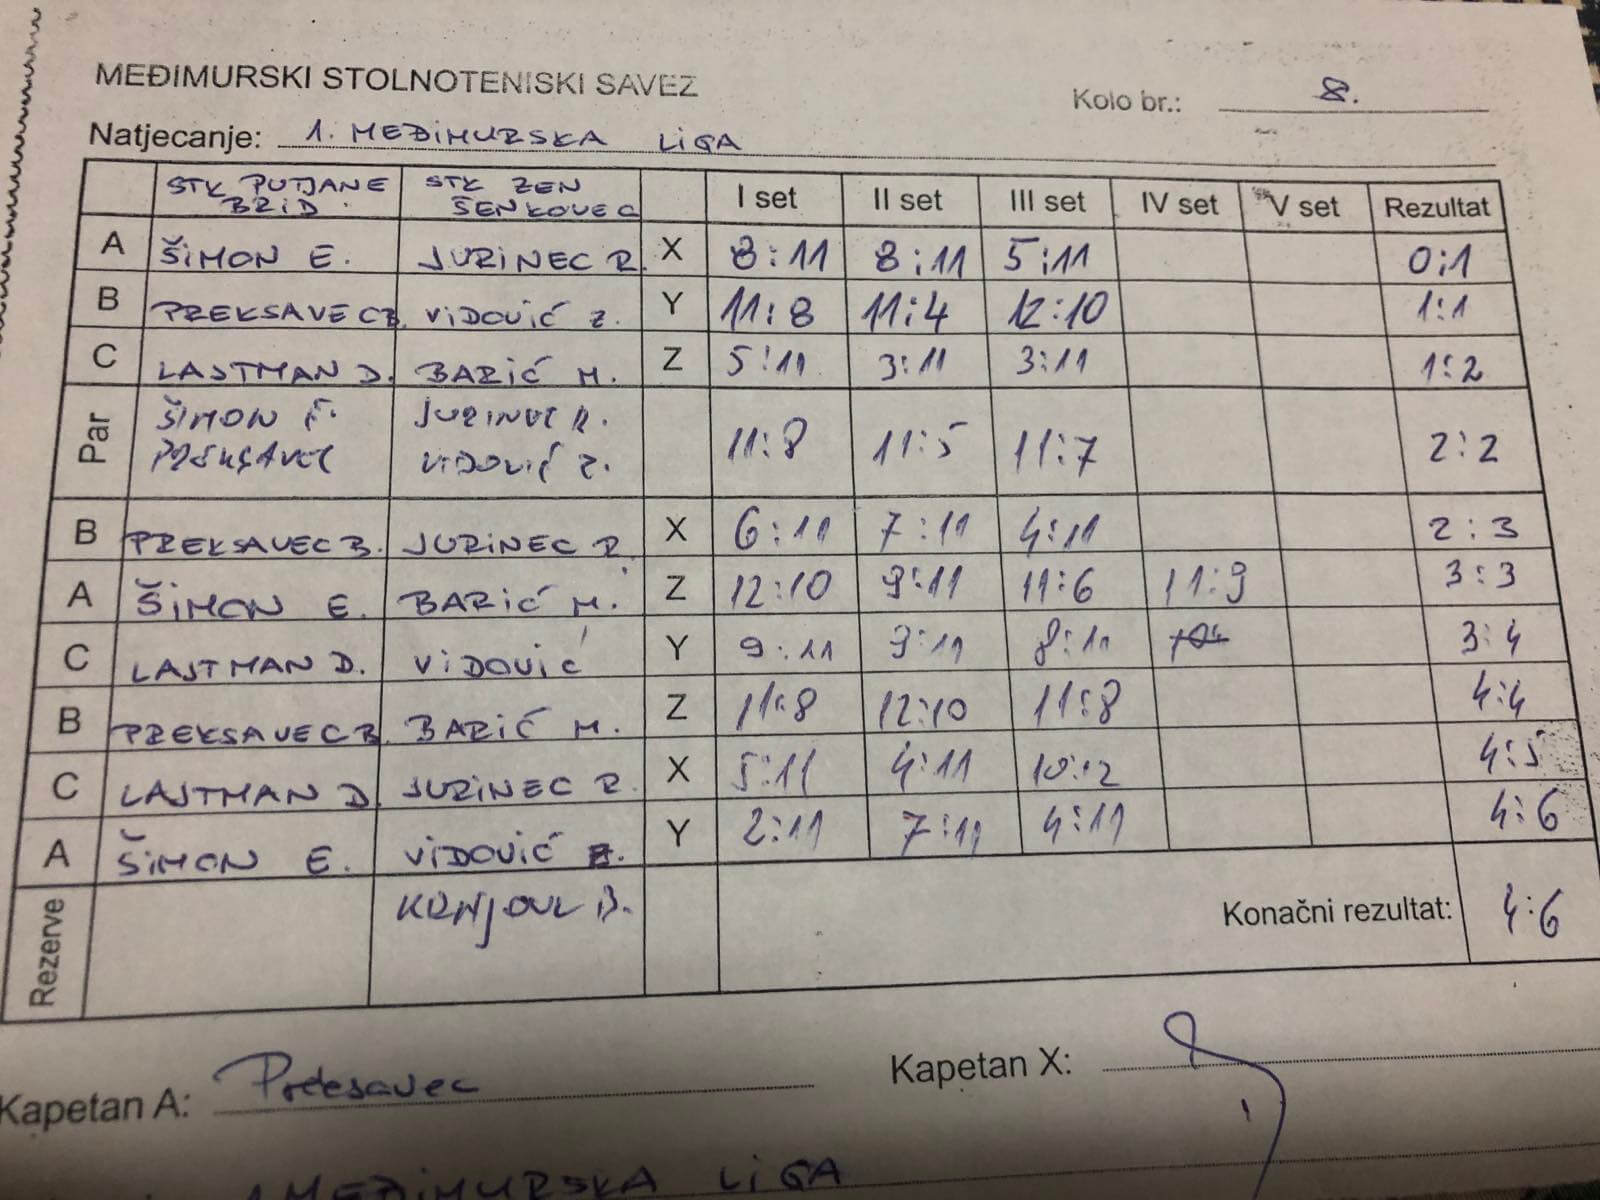 MEĐIMURSKI STOLNOTENISKI SAVEZ
Kolo br.: 8.
Natjecanje: 1. MEĐIMURSKA LIGA
STK PUTJANE BRID STK ZEN ŠENKOVEC I set II set III set IV set V set Rezultat
A ŠIMON E. JURINEC R. X 8:11 8:11 5:11 0:1
B PREKSAVEC B. VIDOVIĆ Z. Y 11:8 11:4 12:10 1:1
C LAJTMAN D. BARIĆ M. Z 5:11 3:11 3:11 1:2
Par ŠIMON E. JURINEC R. 11:8 11:5 11:7 2:2
PREKSAVEC VIDOVIĆ Z.
B PREKSAVEC B. JURINEC R. X 6:11 7:11 4:11 2:3
A ŠIMON E. BARIĆ M. Z 12:10 9:11 11:6 11:9 3:3
C LAJTMAN D. VIDOVIĆ Y 9:11 9:11 8:11 3:4
B PREKSAVEC B. BARIĆ M. Z 11:8 12:10 11:8 4:4
C LAJTMAN D. JURINEC R. X 5:11 4:11 10:12 4:5
A ŠIMON E. VIDOVIĆ Z. Y 2:11 7:11 4:11 4:6
Rezerve B. Konačni rezultat: 4:6
Kapetan A: Preksavec Kapetan X:
1 MEĐIMURSKA LIGA